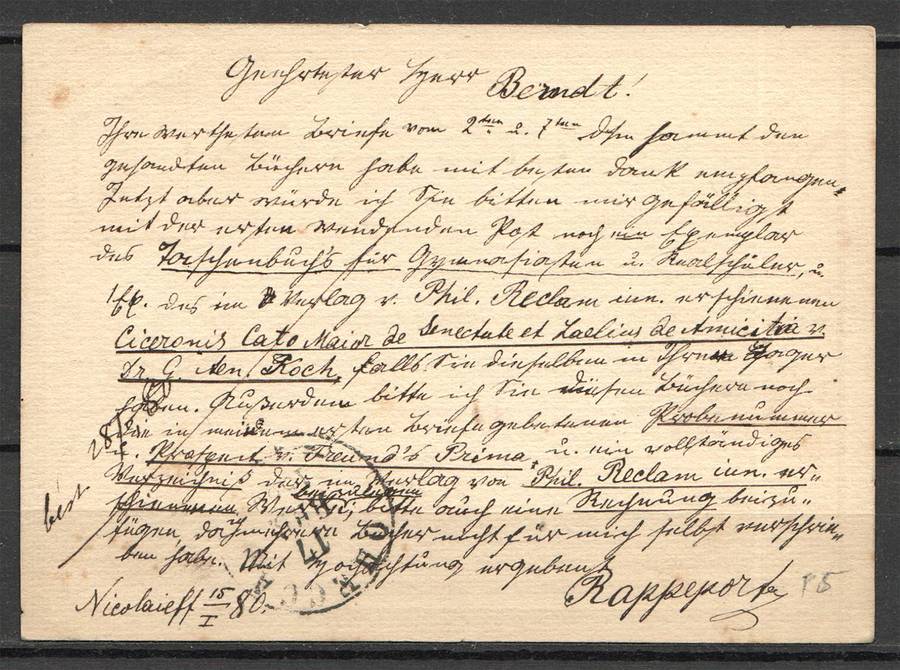 Geehrtester Herr Berndt!
Ihre werthesten Briefe vom 2ten u. 7ten dsm sammt den
gesandten Büchern habe mit besten Dank empfangen,
Jetzt aber würde ich Sie bitten mir gefälligst
mit der ersten wendenden Post noch ein Exemplar
des Taschenbuch's für Gymnasiasten u. Realschüler, u.
1 Ex. des im Verlag v. Phil. Reclam iun. erschienenen
Ciceronis Cato Maior de Senectute et Laelius de Amicitia v.
Dr. G. Aen. Koch, falls Sie dieselben in Ihrem Lager
haben. Außerdem bitte ich Sie diesen Büchern noch
die in meinem ersten Briefe gebetenen Probenummer
u. Prospect v. Freund's Prima, u. ein vollständiges
Verzeichniß der im Verlag von Phil. Reclam iun. er-
schienenen Werke beizulegen, bitte auch eine Rechnung beizu-
fügen, da mehrere Bücher nicht für mich selbst verschrie-
ben habe. Mit Hochachtung ergebenst
Rappeport
Nicolaieff 15/I 80.
best 28/